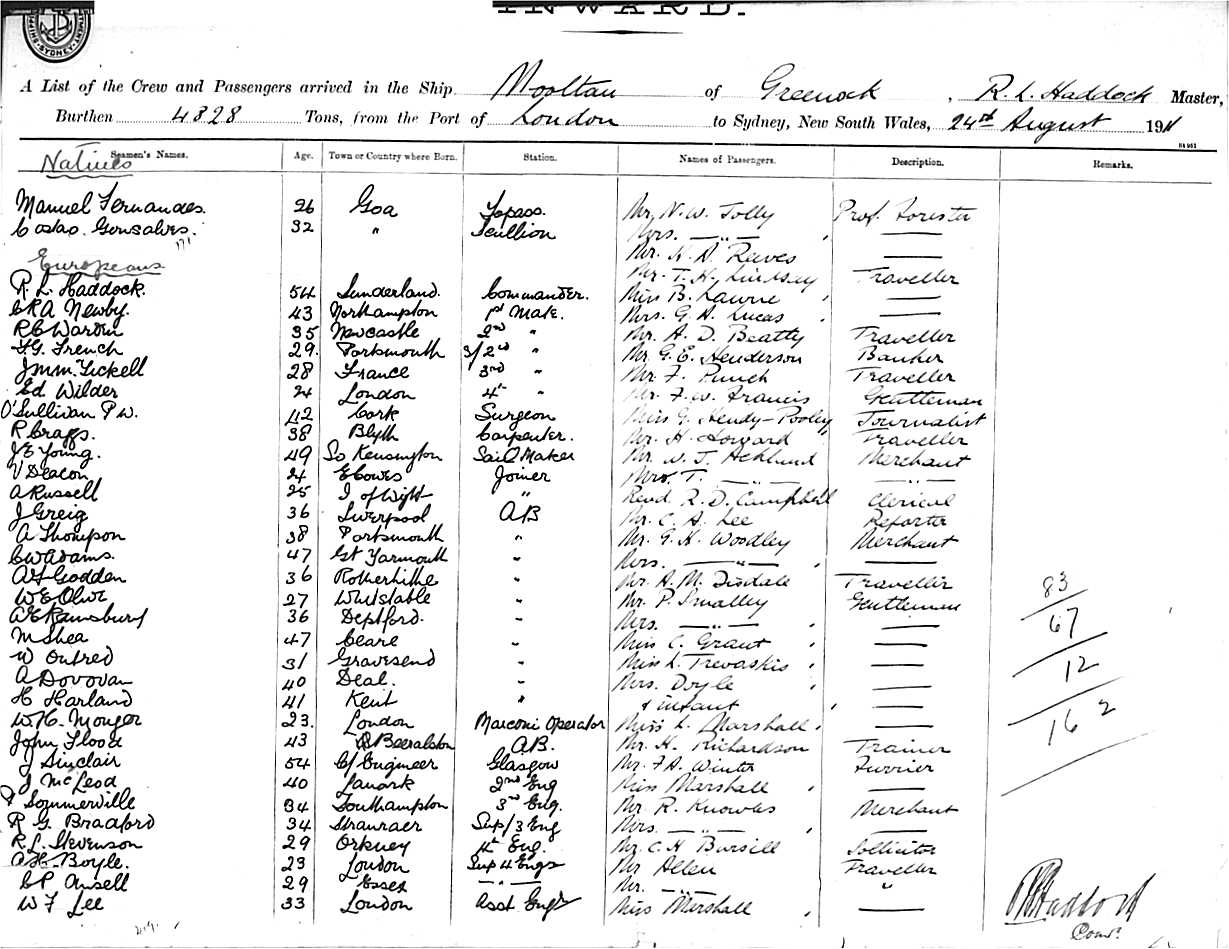 INWARD.
SYDNEY
A List of the Crew and Passengers arrived in the Ship Mooltan of Greenock, R. L. Haddock Master,
Burthen 4828 Tons, from the Port of London to Sydney, New South Wales, 24th August 1911
Seamen's Names. Age. Town or Country where Born. Station. Names of Passengers. Description. Remarks.
Natives
Manuel Fernandes. 26 Goa Topass. Mr. N. W. Jolly Prof. Forester
Gonsalves. 32 " Scullion Mrs. — " —
Mr. H. D. Reeves
Europeans
Mr. T. H. Lindsey Traveller
R. L. Haddock. 54 Sunderland. Commander. Miss B. Lawrie
C R A Newby. 43 Northampton 1st Mate. Mrs. G. A. Lucas
R C Warden 35 Newcastle 2nd " Mr. A. D. Beatty Traveller
F. G. French 29. Portsmouth s/2nd " Mr. G. E. Henderson Banker
Tickell 28 France 3rd " Mr. F. Punch Traveller
Ed. Wilder 24 London 4th " Mr. F. W. Francis Gentleman
O'Sullivan P W. 42 Cork Surgeon Miss G. Hendy-Pooley Journalist
R Craggs. 38 Blyth Carpenter. Mr. H. Howard Traveller
J E Young. 49 So Kensington Sail Maker Mr. W. J. Acklund Merchant
V Deacon 24 E Cowes Joiner Mrs. T. — " — — " —
A Russell 25 I of Wight " Revd R. D. Campbell Clerical
J Greig 36 Liverpool AB Mr. C. A. Lee Reporter
A Thompson 38 Portsmouth " Mr. G. H. Woodley Merchant
C W Adams. 47 Gt Yarmouth " Mrs. — " —
A F Godden 36 Rotherhithe " Mr. A. M. Disdale Traveller
W E Olive 27 Whitstable " Mr. P. Smalley Gentleman
A E Ramsbury 36 Deptford. " Mrs. — " —
M Shea 47 Ceare " Miss C. Grant
W Outred 31 Gravesend " Miss L. Trevaskis
A Dovovan 40 Deal. " Mrs. Doyle
H Harland 41 Kent " & infant
W. H. Monger 23. London Marconi Operator Miss L. Marshall
John Flood 43 Beeralston A.B. Mr. H. Richardson Trainer
J Sinclair 54 Cf Engineer Glasgow Mr. F. A. Winter Furrier
J McLeod 40 Lanark 2nd Eng Miss Marshall
P Sommerville 34 Southampton 3rd Eng. Mr. R. Knowles Merchant
R G Bradford 34 Stranraer Sup/3 Eng Mrs. — " —
R. L. Stevenson 29 Orkney 4th Eng. Mr. C. H. Bursill Sollicitor
A. H. Boyle. 23 London Sup 4 Engs Mr Allen Traveller
C P Ansell 29 Essex — " — Mr. — " — "
W F Lee 33 London Asst Engr Miss Marshall
83
67
12
162
R L Haddock
Comdr